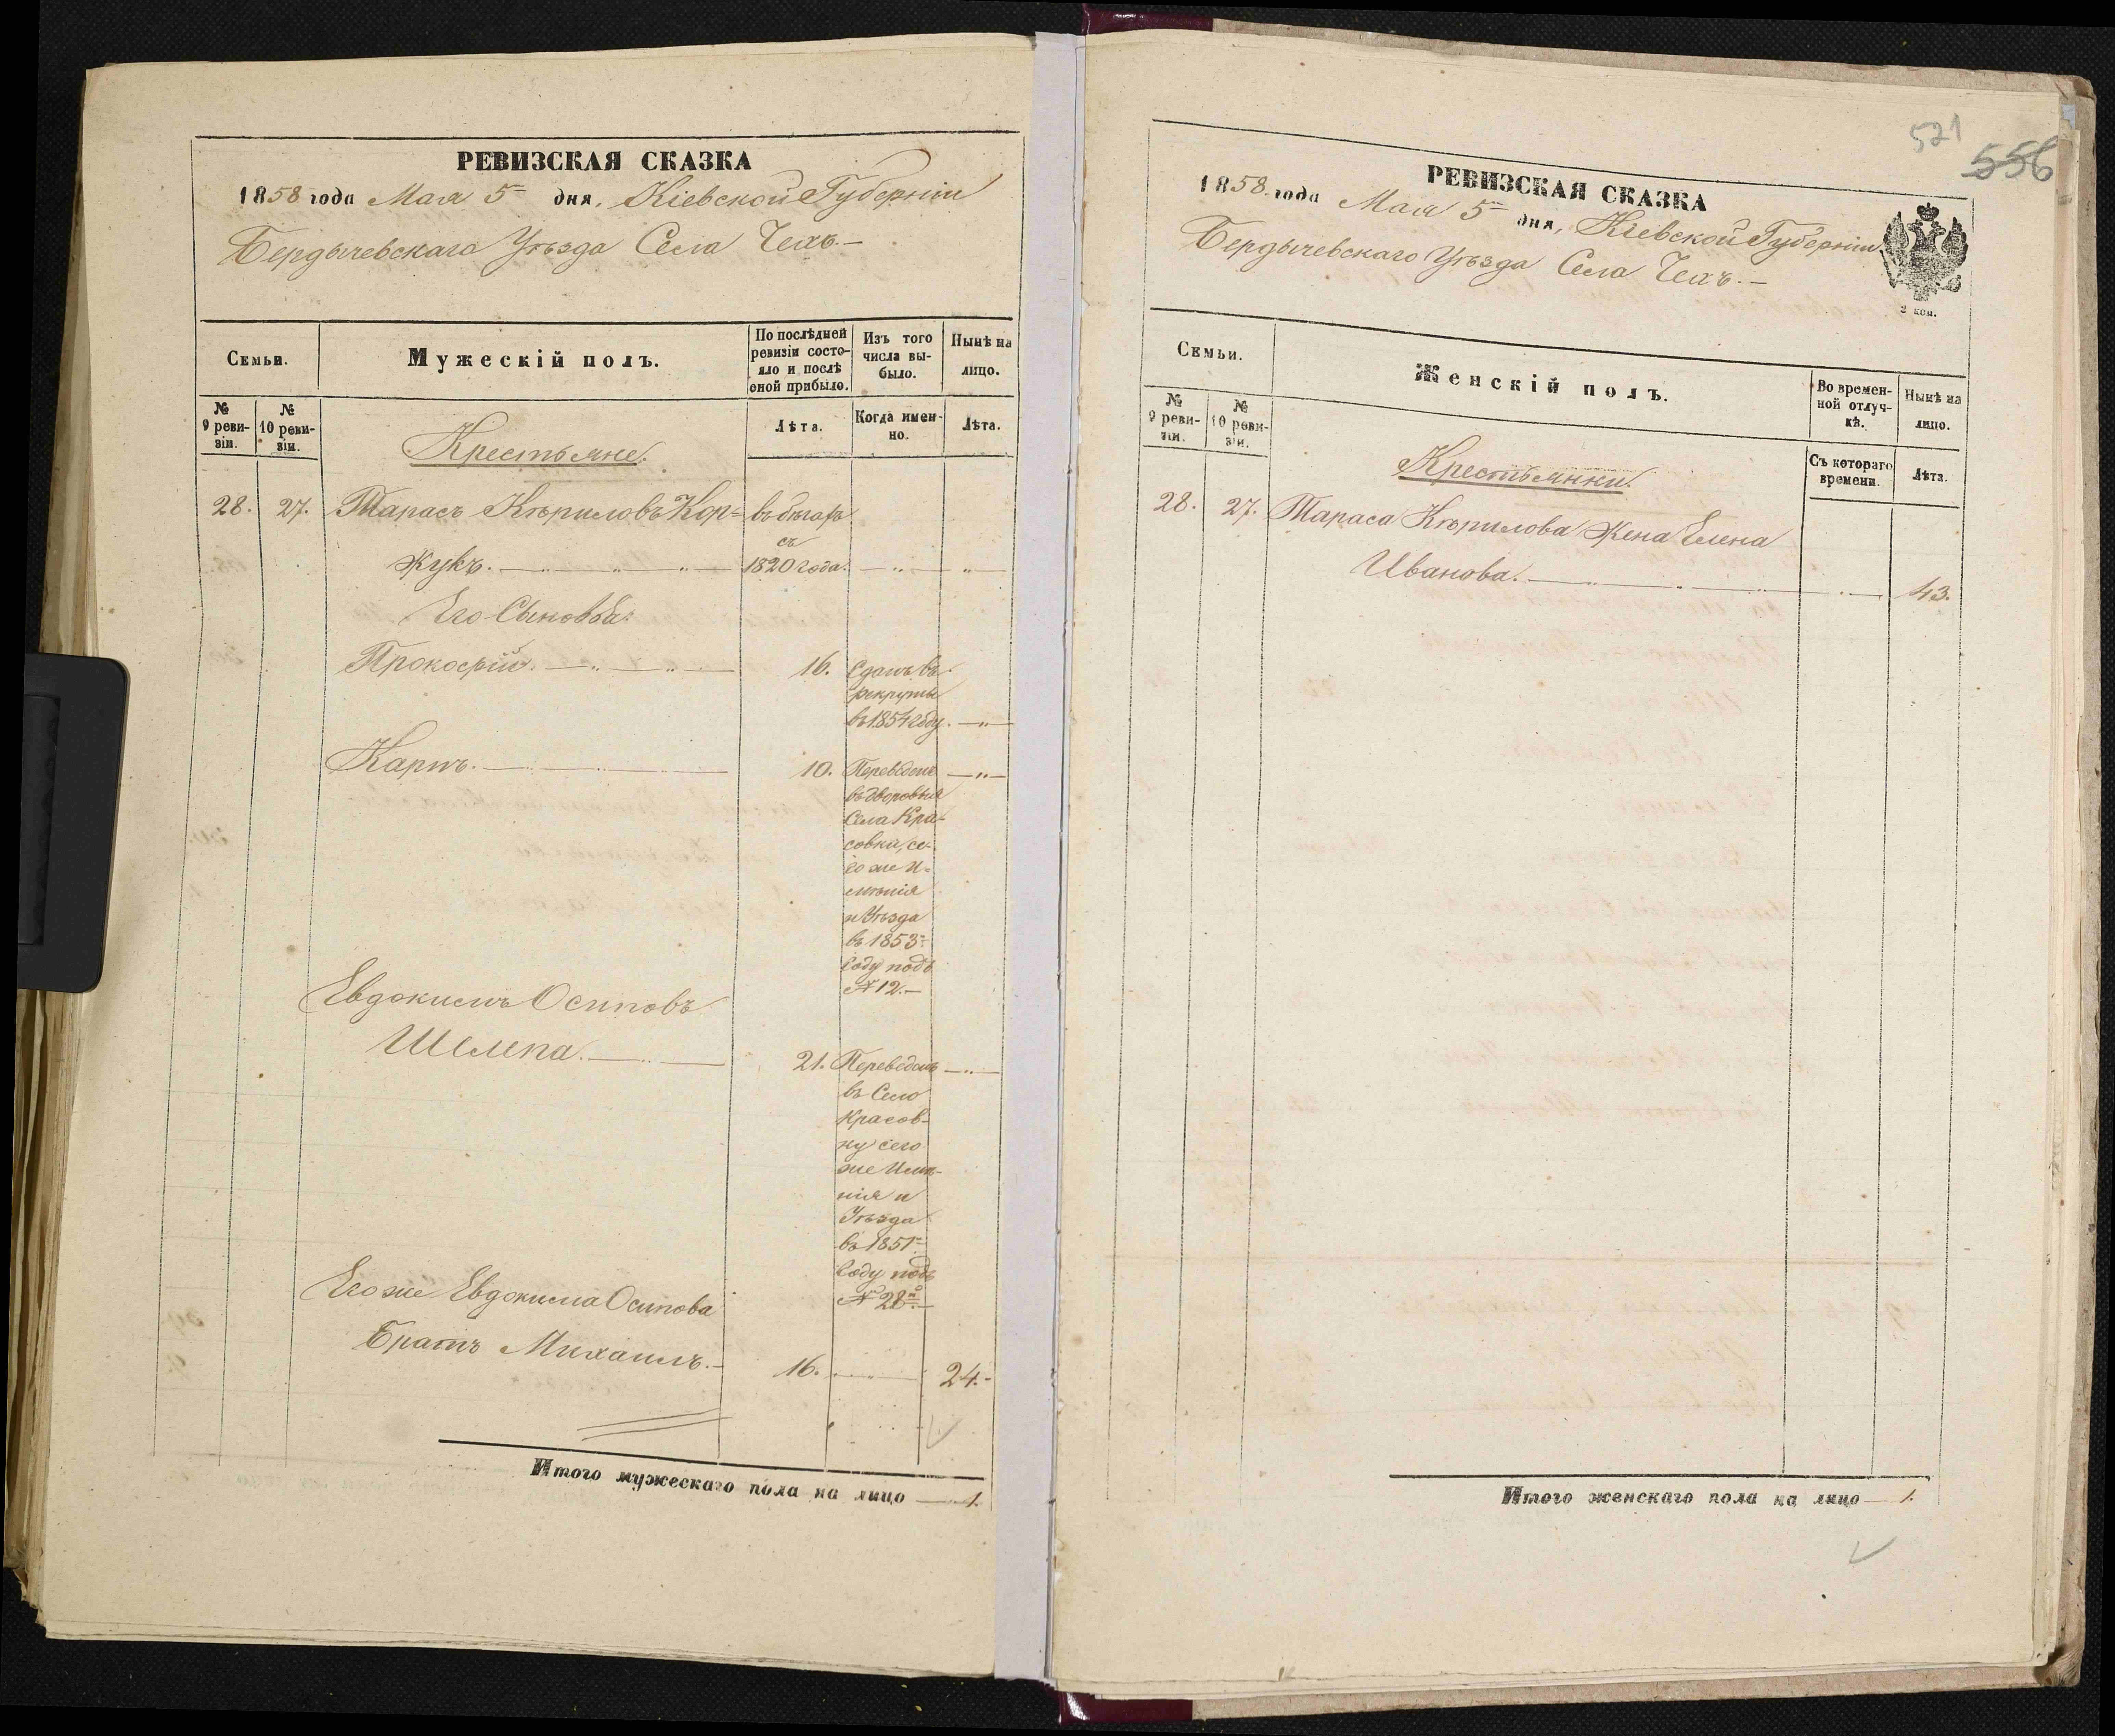 РЕВИЗСКАЯ СКАЗКА
1858 года Мая 5 дня, Кіевской Губерніи
Бердычевскаго Уѣзда Села Чехъ.—
Семьи.
Мужескій полъ.
По послѣдней ревизіи состояло и послѣ оной прибыло.
Изъ того числа выбыло.
Нынѣ на лицо.
№ 9 ревизіи.
№ 10 ревизіи.
Лѣта.
Когда именно.
Лѣта.
Крестьяне.
28. 27. Тарасъ Кѣриловъ Кор= въ бѣгахъ
съ
жукъ. 1820 года.
Его Сыновья:
Прокофій. 16. Сданъ въ
рекруты
въ 1854 году.
Карпъ. 10. Переведенъ
въ дворовыя
Села Кра-
совки, се-
го же И-
мѣнія
и Уѣзда
въ 1853
году подъ
№ 12.—
Евдокимъ Осиповъ
Шелепа. 21. Переведенъ
въ Село
Красов-
ку сего
же Имѣ-
нія и
Уѣзда
въ 1851
году подъ
№ 28.—
Его же Евдокима Осипова
Братъ Михаилъ.— 16. 24.-
Итого мужескаго пола на лицо — 1.
521
556
РЕВИЗСКАЯ СКАЗКА
1858 года Мая 5 дня, Кіевской Губерніи
Бердычевскаго Уѣзда Села Чехъ.—
2 коп.
Семьи.
Женскій полъ.
Во временной отлучкѣ.
Нынѣ на лицо.
№ 9 ревизіи.
№ 10 ревизіи.
Съ котораго времени.
Лѣта.
Крестьянки.
28. 27. Тараса Кѣрилова Жена Елена
Иванова. 43.
Итого женскаго пола на лицо — 1.